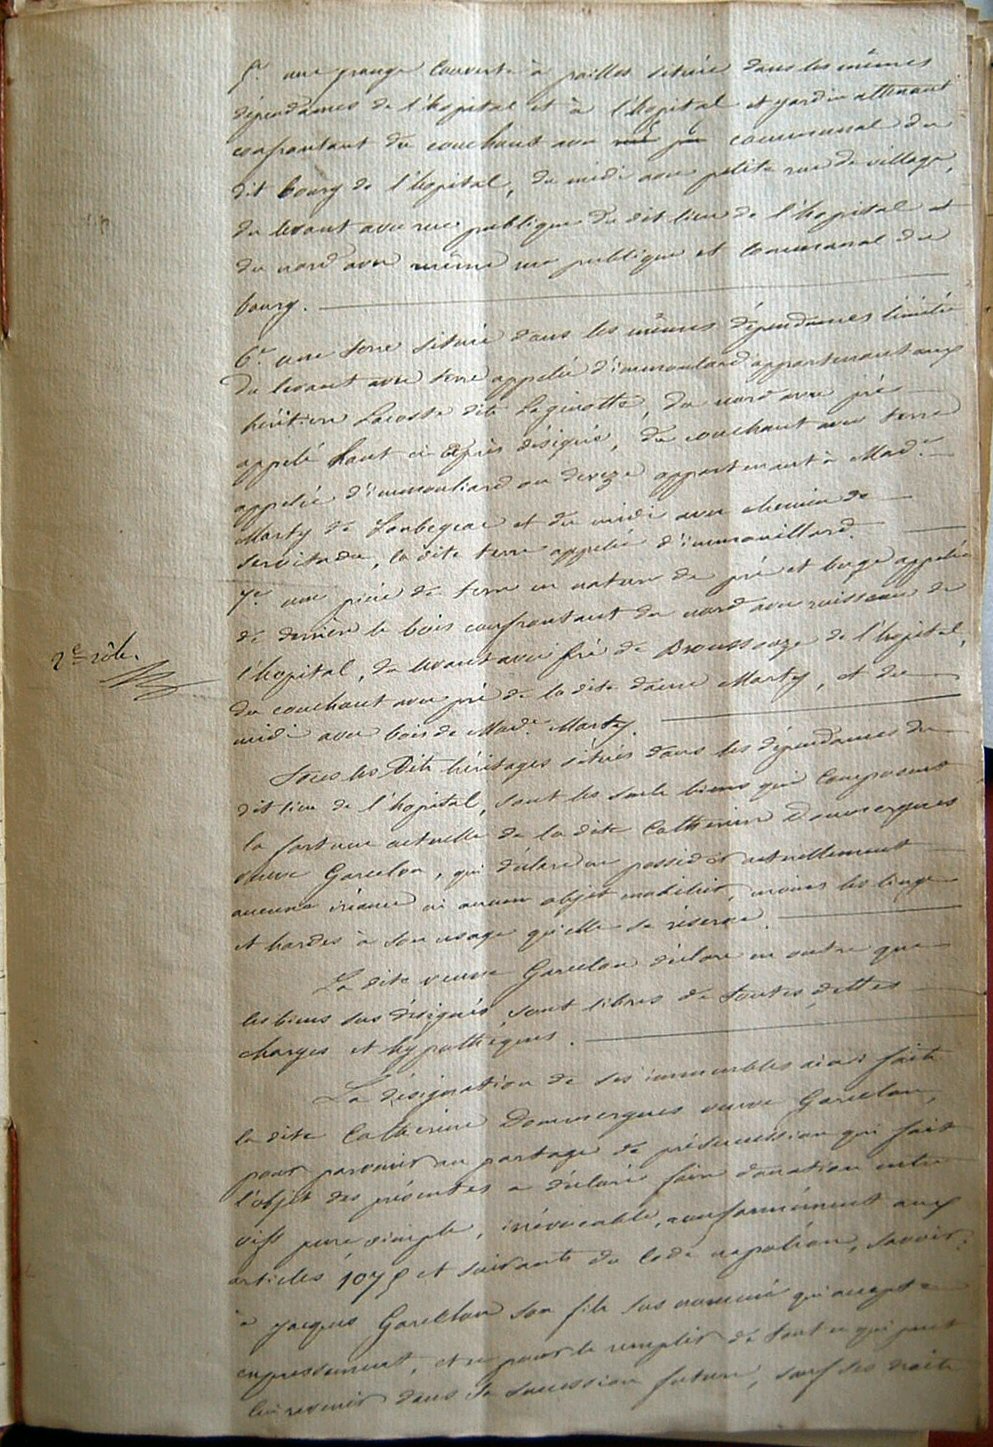 5° une grange couverte à paille située dans les mêmes
dépendances de l'hopital et à l'hopital et jardin attenant
confrontant du couchant avec communal du
dit bourg de l'hopital, du midi avec petite rue de village,
du levant avec rue publique du dit lieu de l'hopital et
du nord avec même rue publique et communal du
bourg.
6° une terre située dans les mêmes dépendances limitée
du levant avec terre appelée d' appartenant aux
héritiers Lacoste dit Laginotte, du nord avec pré
appelé haut ci après désigné, du couchant avec terre
appelée d' ou appartenant à Made
Marty de et du midi avec chemin de
servitude, la dite terre appelée d'
7° une pièce de terre en nature de pré et buge appelée
de derrière le bois confrontant du nord avec ruisseau de
l'hopital, du levant avec pré de de l'hopital,
du couchant avec pré de la dite dame Marty, et du
midi avec bois de Made Marty.
2e rôle.
Tous les dits héritages situés dans les dépendances du
dit lieu de l'hopital, sont les seuls biens qui composent
la fortune actuelle de la dite Catherine Doumergues
veuve Garcelon, qui déclare ne posséder actuellement
aucune créance ni aucun objet mobilier, moins les linges
et hardes à son usage qu'elle se réserve.
La dite veuve Garcelon déclare en outre que
les biens sus désignés, sont libres de toutes dettes
charges et hypothèques.
La désignation de ses immeubles ainsi faite
la dite Catherine Doumergues veuve Garcelon,
pour parvenir au partage de présuccession qui fait
l'objet des présentes a déclaré faire donation entre
vifs pure, simple, irrévocable, conformément aux
articles 1075 et suivants du Code napoléon, savoir:
à Jacques Garcelon son fils sus nommé qui accepte
expressément, et ce pour le remplir de tout ce qui peut
lui revenir dans sa succession future, sauf ses droits